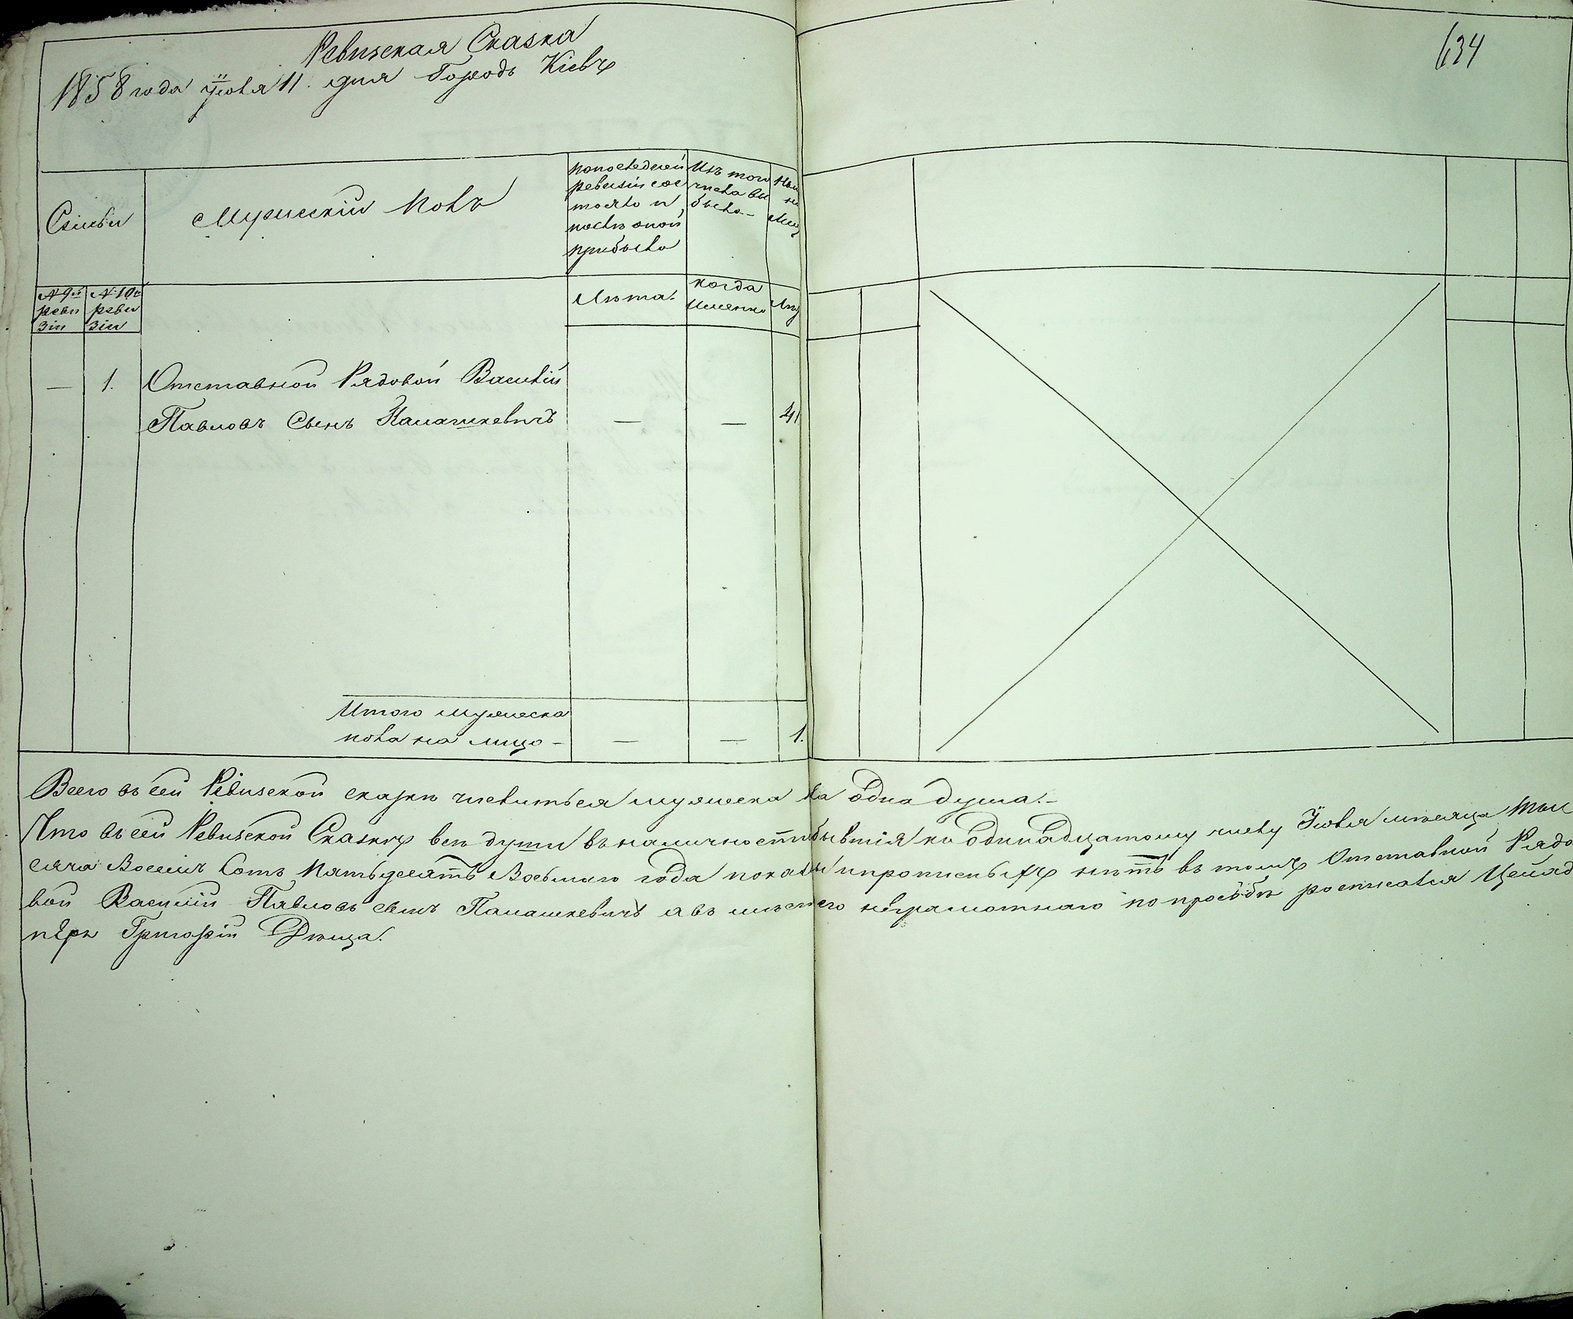 634
Ревизская Сказка
1858 года Июля 11. дня Городъ Кіевъ
Семьи
Мужескій полъ
По последней
ревизіи сос
тояло и
послѣ оной
прибыло
Изъ того
числа вы
было
№ 9й
реви
зіи
№ 10й
реви
зіи
Лѣта.
Когда
именно
— 1. Отставной Рядовой Василій
Павловъ Сынъ Палашкевичъ — — 41
Итого мужеска
пола на лицо — — — 1.
Всего въ сей Ревизской сказкѣ числиться мужеска одна душа.—
Что въ сей Ревизской Сказкѣ всѣ души въ наличности бывшія по одинадцатому числу Іюля мѣсяца тыс
сяча Восемь Сотъ Пятьдесятъ Восьмаго года показаны и прописныхъ нѣтъ въ томъ Отставной Рядо
вой Василій Павловъ сынъ Палашкевичъ а въ мѣсто его неграмотнаго по просьбѣ росписался
Григорій